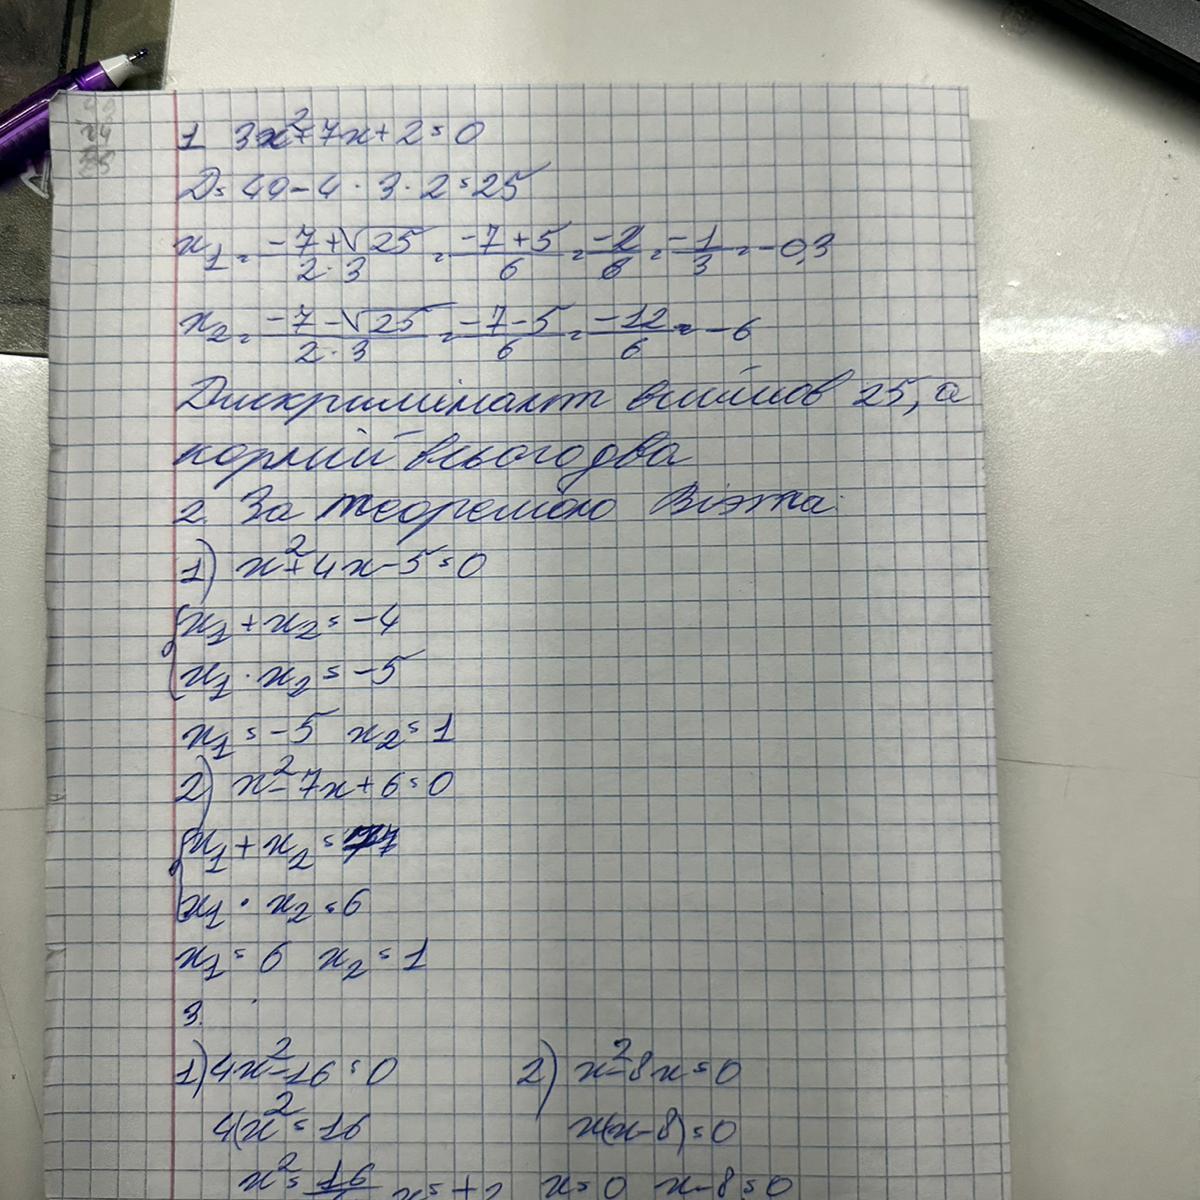 1 3x²+7x+2=0
D=49-4·3·2=25
x₁=(-7+√25)/(2·3)=(-7+5)/6=-2/6=-1/3=-0,3
x₂=(-7-√25)/(2·3)=(-7-5)/6=-12/6=-6
Дискримінант вийшов 25, а
корній всього два
2. За теоремою Вієта:
1) x²+4x-5=0
{x₁+x₂=-4
x₁·x₂=-5
x₁=-5 x₂=1
2) x²-7x+6=0
{x₁+x₂=7
x₁·x₂=6
x₁=6 x₂=1
3.
1) 4x²-16=0 2) x²-8x=0
4(x²=16 x(x-8)=0
x²=16/ x=+2 x=0 x-8=0